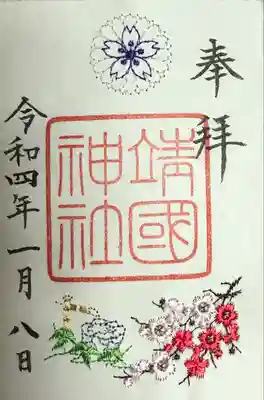 奉拝
靖國神社
令和四年一月八日